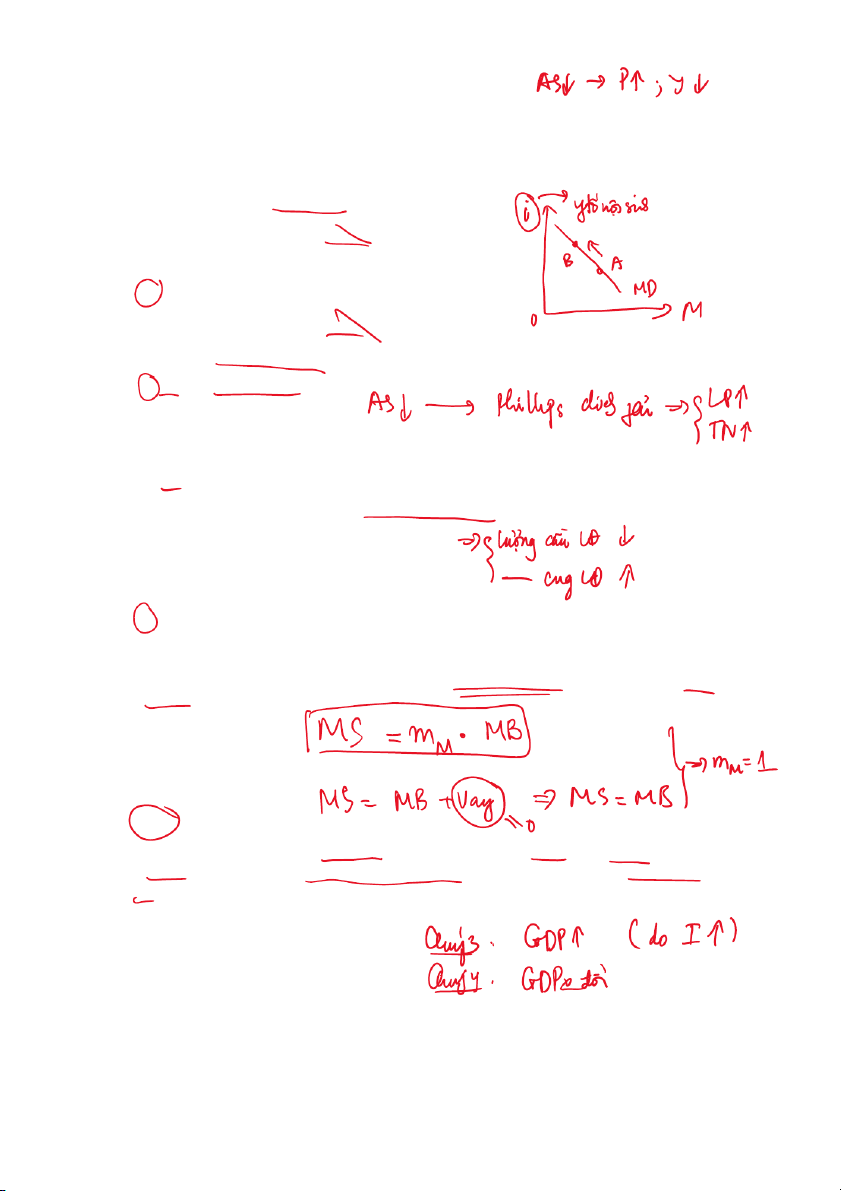 AS↓ → P↑ ; Y↓
i → ytố nội sinh
B A
MD
0 M
AS↓ → Phillips dịch phải ⇒ { LP↑
TN↑
⇒ { lượng cầu LĐ ↓
— cung LĐ ↑
MS = mM . MB
⇒ mM = 1
MS = MB + Vay = 0 ⇒ MS = MB
Quý 3 : GDP↑ (do I↑)
Quý 4 : GDP x đổi